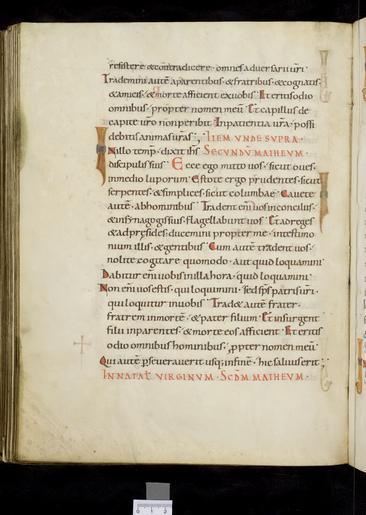 resistere & contradicere · omnes adversarii uri ·
Trademini autē aparentibus & fratribus · & cognatis
& amicis · & morte afficient exuobis · Et eritis odio
omnibus · propter nomen meū · Et capillus de
capite uro nonperibit · Inpatientia ura · possi
debitis animas uras · ITEM UNDE SUPRA ·
Nillo temp̄ · dixit ihs SECUNDŪ MATHEUM ·
discipulis suis · Ecce ego mitto uos · sicut oues ·
inmedio luporum · Estote ergo prudentes · sicut
serpentes · & simplices · sicut columbae · Cauete
autē · Abhominibus · Tradent enī uos inconciliis ·
& insynagogis suis · flagellabunt uos · Et adreges
& adpresides · ducemini propter me · intestimo
nium illis · & gentibus · Cum autē tradent uos ·
nolite cogitare quomodo · aut quid loquamini
Dabitur enī uobis inilla hora · quid loquamini
Non enī uos estis · qui loquimini · sed sps patris uri ·
qui loquitur inuobis · Trad& autē frater ·
fratrem inmortē · & pater filium · Et insurgent
filii inparentes · & morte eos afficient · Et eritis
odio omnibus hominibus · ppter nomen meū
Qui autē pseuerauerit usq; infinē · hic saluus erit ·
IN NATAL̄ VIRGINUM · SCDM MATHEUM ·